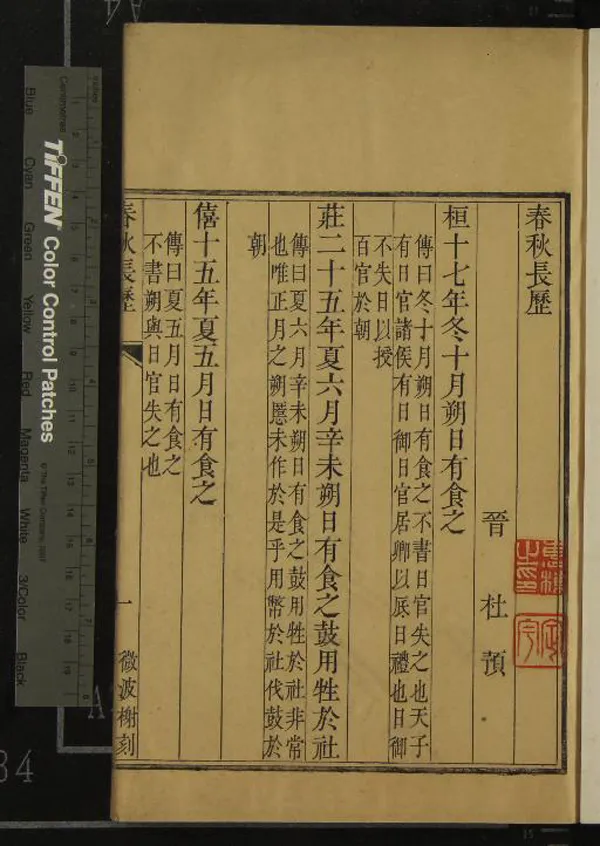 春秋長歷
晉 杜預
桓十七年冬十月朔日有食之
傳曰冬十月朔日有食之不書日官失之也天子
有日官諸侯有日御日官居卿以底日禮也日御
不失日以授
百官於朝
莊二十五年夏六月辛未朔日有食之鼓用牲於社
傳曰夏六月辛未朔日有食之鼓用牲於社非常
也唯正月之朔慝未作於是乎用幣於社伐鼓於
朝
僖十五年夏五月日有食之
傳曰夏五月日有食之
不書朔與日官失之也
春秋長歷
一
微波榭刻
TIFFEN Color Control Patches
© The Tiffen Company, 2007
Centimetres
Inches
Blue
Cyan
Green
Yellow
Red
Magenta
White
3/Color
Black